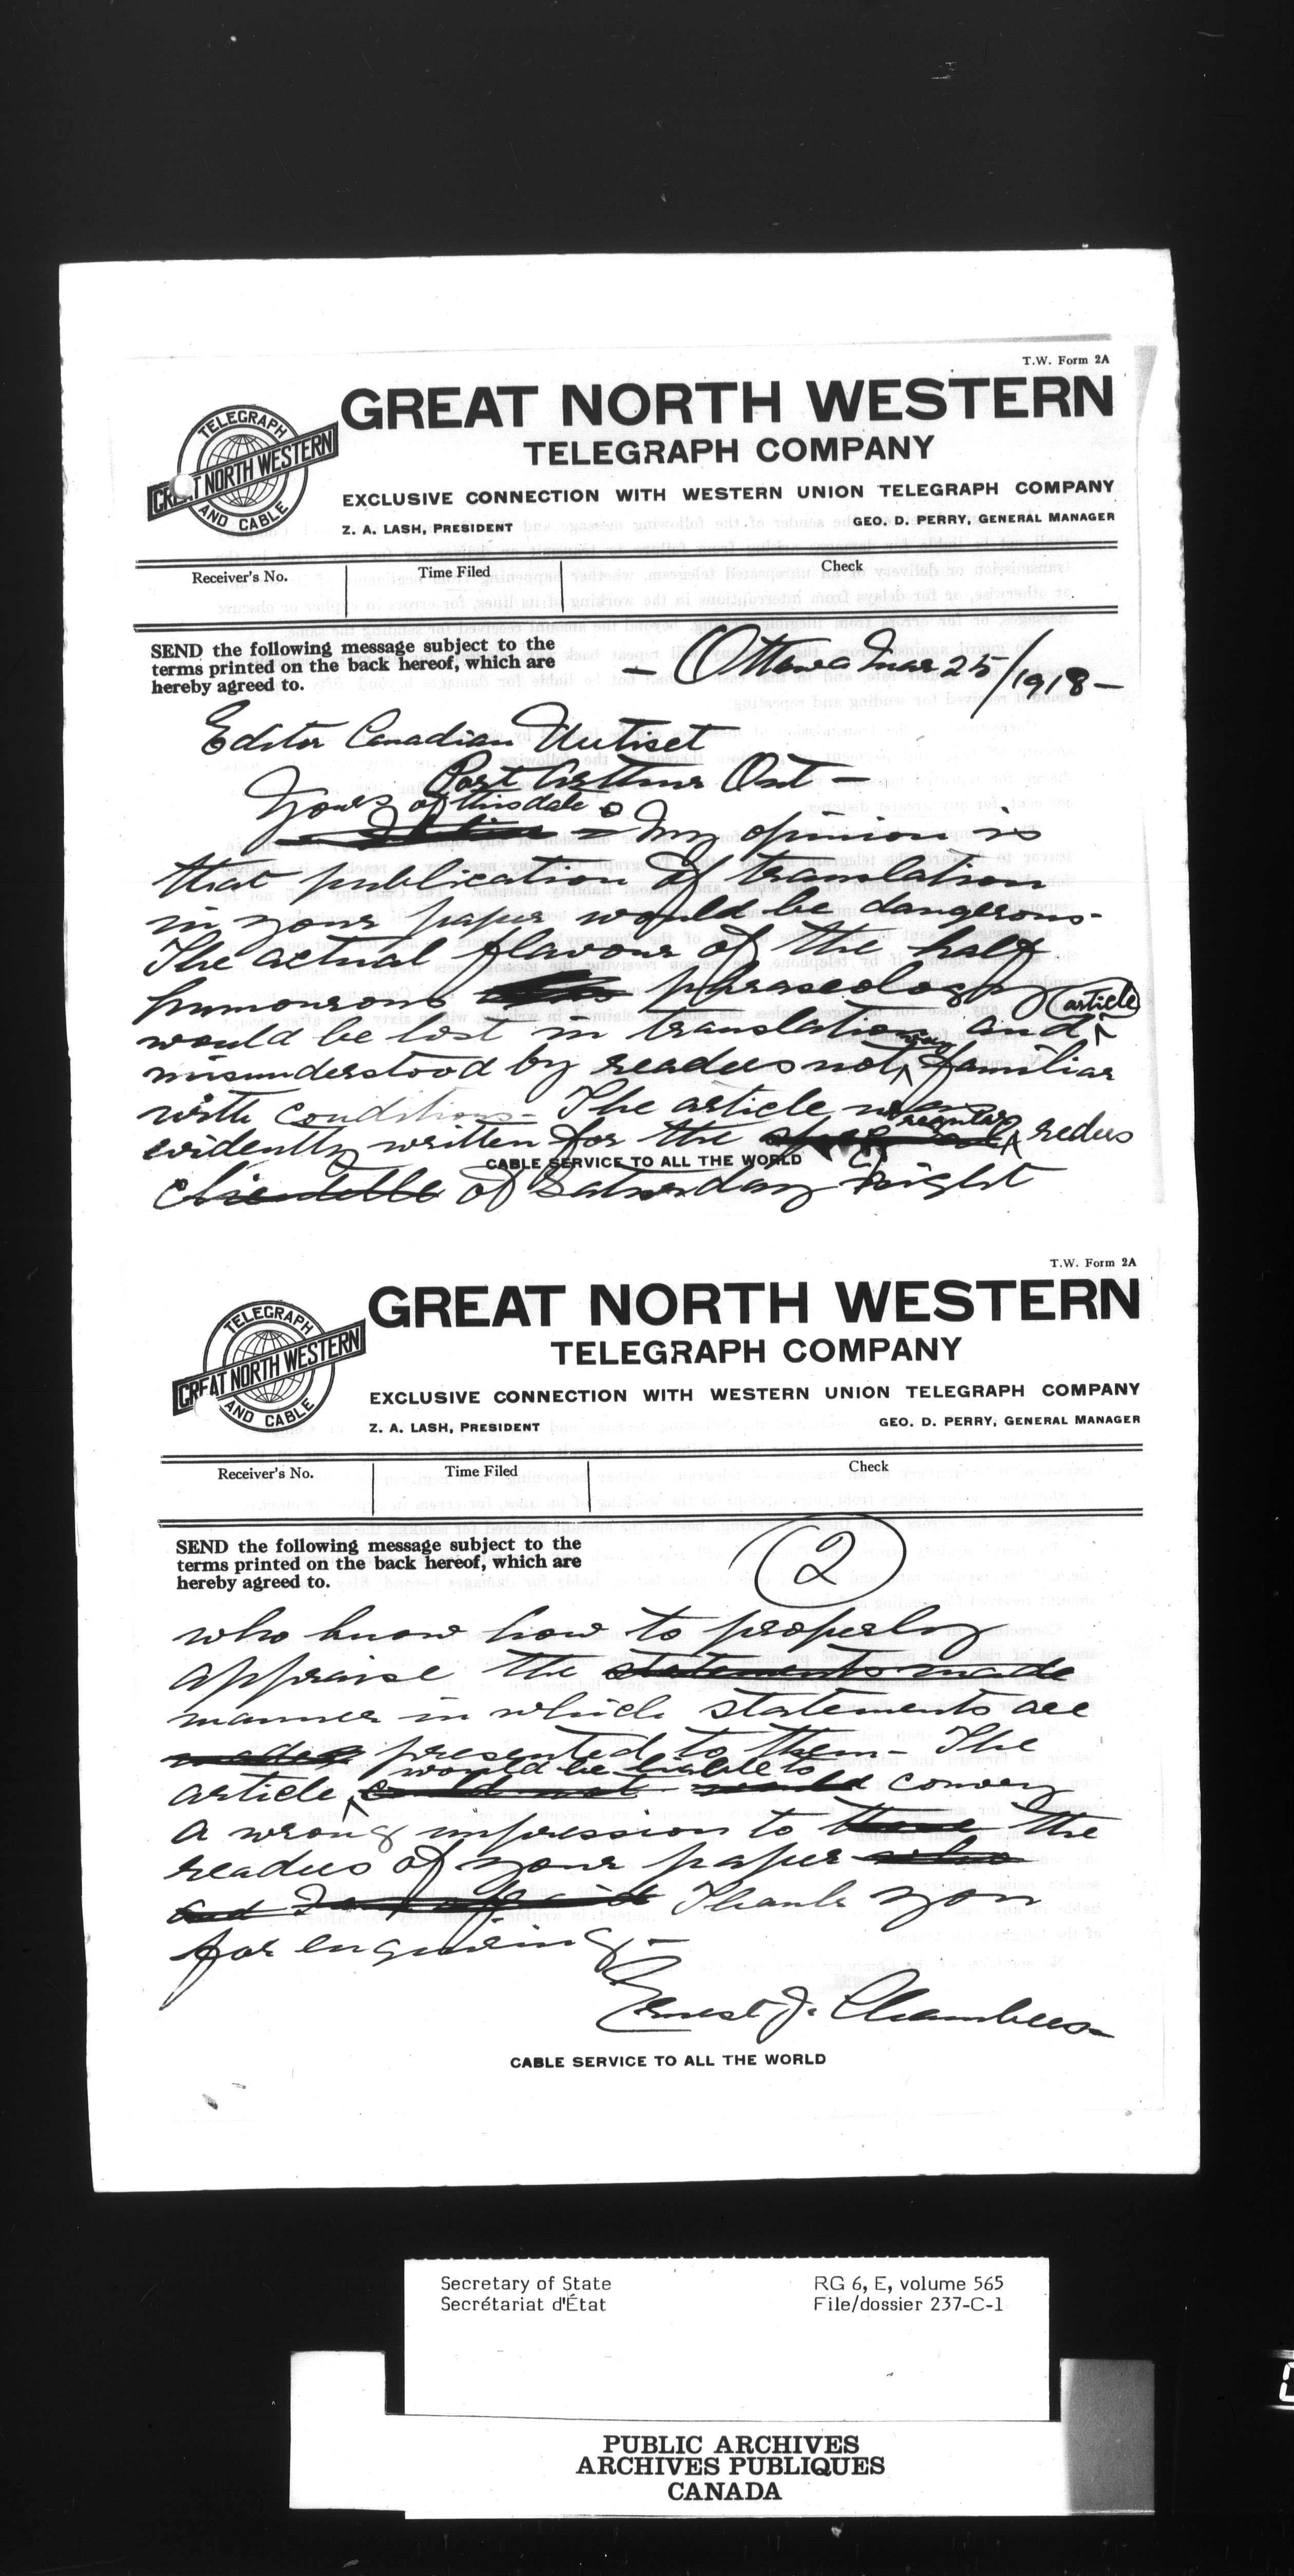 T.W. Form 2A
GREAT NORTH WESTERN
TELEGRAPH COMPANY
TELEGRAPH
GREAT NORTH WESTERN
AND CABLE
EXCLUSIVE CONNECTION WITH WESTERN UNION TELEGRAPH COMPANY
Z. A. LASH, PRESIDENT GEO. D. PERRY, GENERAL MANAGER
Receiver's No. Time Filed Check
SEND the following message subject to the
terms printed on the back hereof, which are
hereby agreed to.
– Ottawa Mar 25/1918 –
Editor Canadian Uutiset
Port Arthur Ont –
Yours of this date
My opinion is
that publication of translation
in your paper would be dangerous.
The actual flavour of the half
humourous phraseology
would be lost in translation and article
misunderstood by readers not familiar
with conditions – The article was
evidently written for the regular reders
CABLE SERVICE TO ALL THE WORLD
clientelle of Saturday Night
T.W. Form 2A
GREAT NORTH WESTERN
TELEGRAPH COMPANY
TELEGRAPH
GREAT NORTH WESTERN
AND CABLE
EXCLUSIVE CONNECTION WITH WESTERN UNION TELEGRAPH COMPANY
Z. A. LASH, PRESIDENT GEO. D. PERRY, GENERAL MANAGER
Receiver's No. Time Filed Check
SEND the following message subject to the
terms printed on the back hereof, which are
hereby agreed to.
2
who know how to properly
appraise the statements made
manner in which statements are
presented to them. The
would be liable to
article could not would convey
a wrong impression to the
readers of your paper who
and I am afraid Thank you
for enquiring –
Ernest J. Chambers
CABLE SERVICE TO ALL THE WORLD
Secretary of State RG 6, E, volume 565
Secrétariat d'État File/dossier 237-C-1
PUBLIC ARCHIVES
ARCHIVES PUBLIQUES
CANADA